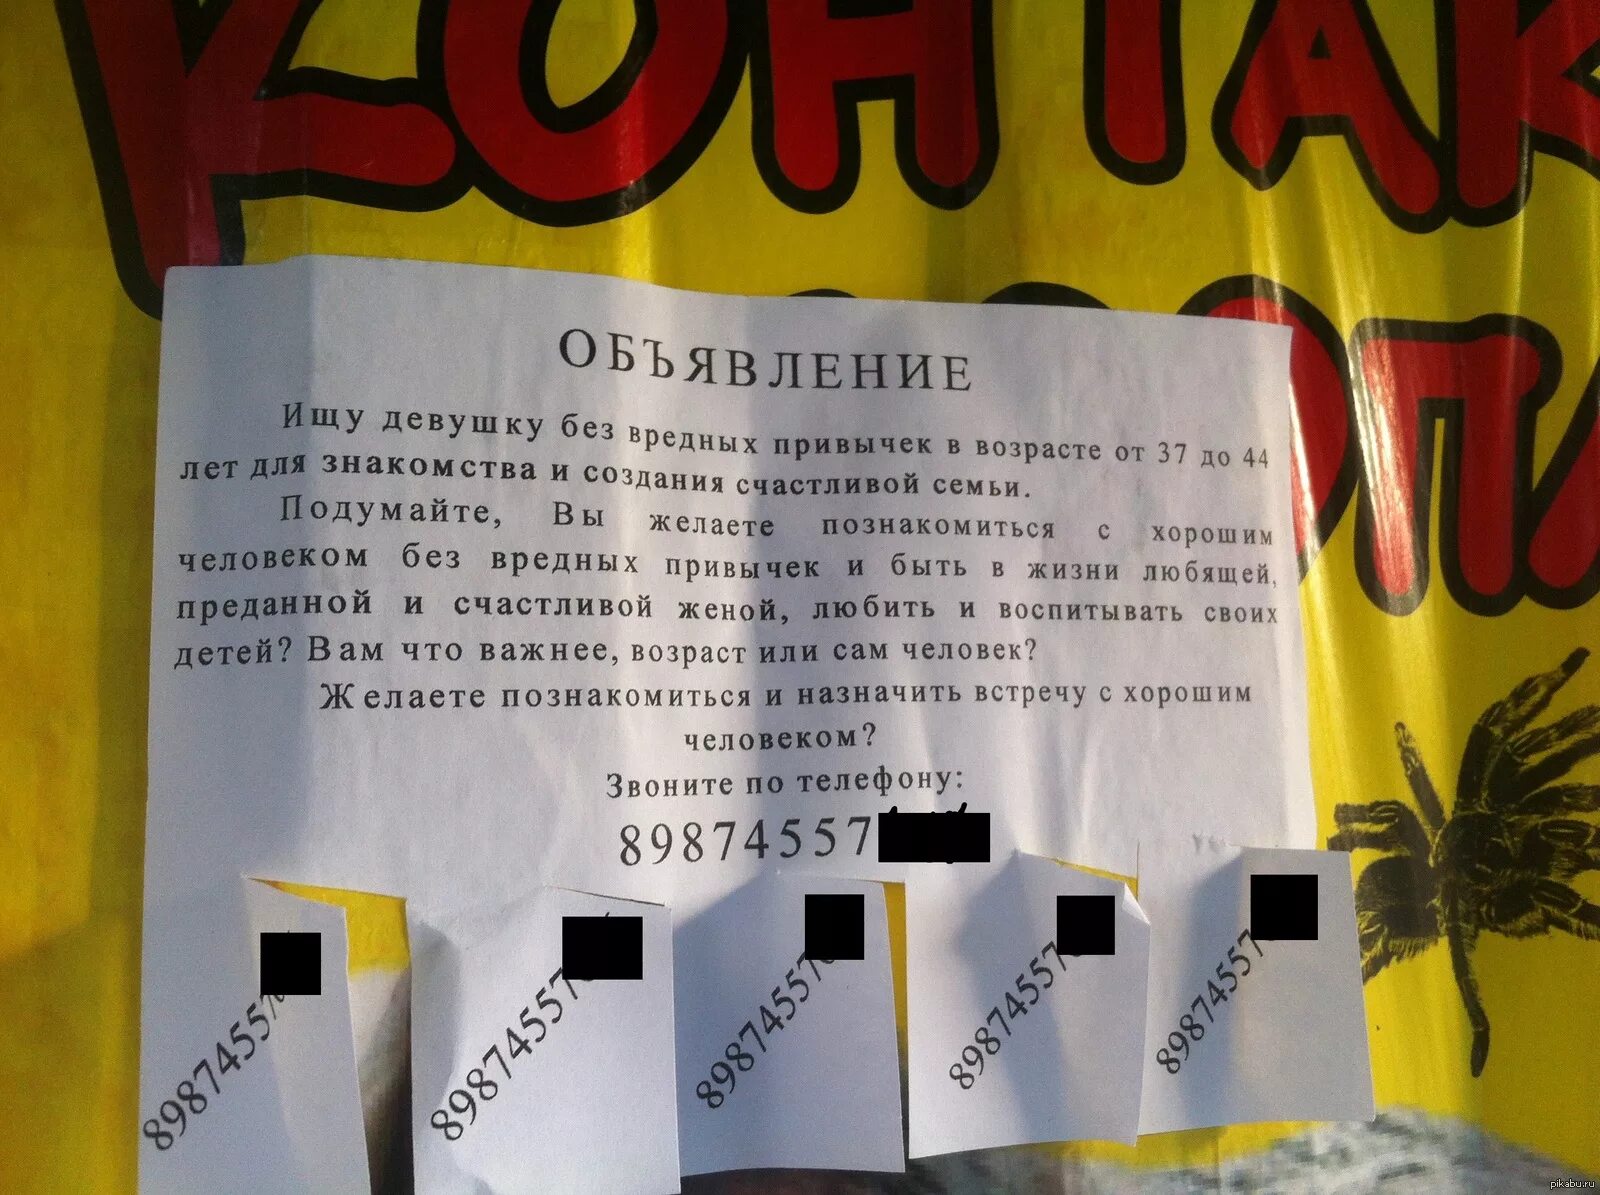 КОНТАК
ОПА
ОБЪЯВЛЕНИЕ
Ищу девушку без вредных привычек в возрасте от 37 до 44
лет для знакомства и создания счастливой семьи.
Подумайте, Вы желаете познакомиться с хорошим
человеком без вредных привычек и быть в жизни любящей,
преданной и счастливой женой, любить и воспитывать своих
детей? Вам что важнее, возраст или сам человек?
Желаете познакомиться и назначить встречу с хорошим
человеком?
Звоните по телефону:
89874557
89874557
89874557
89874557
89874557
89874557
pikabu.ru